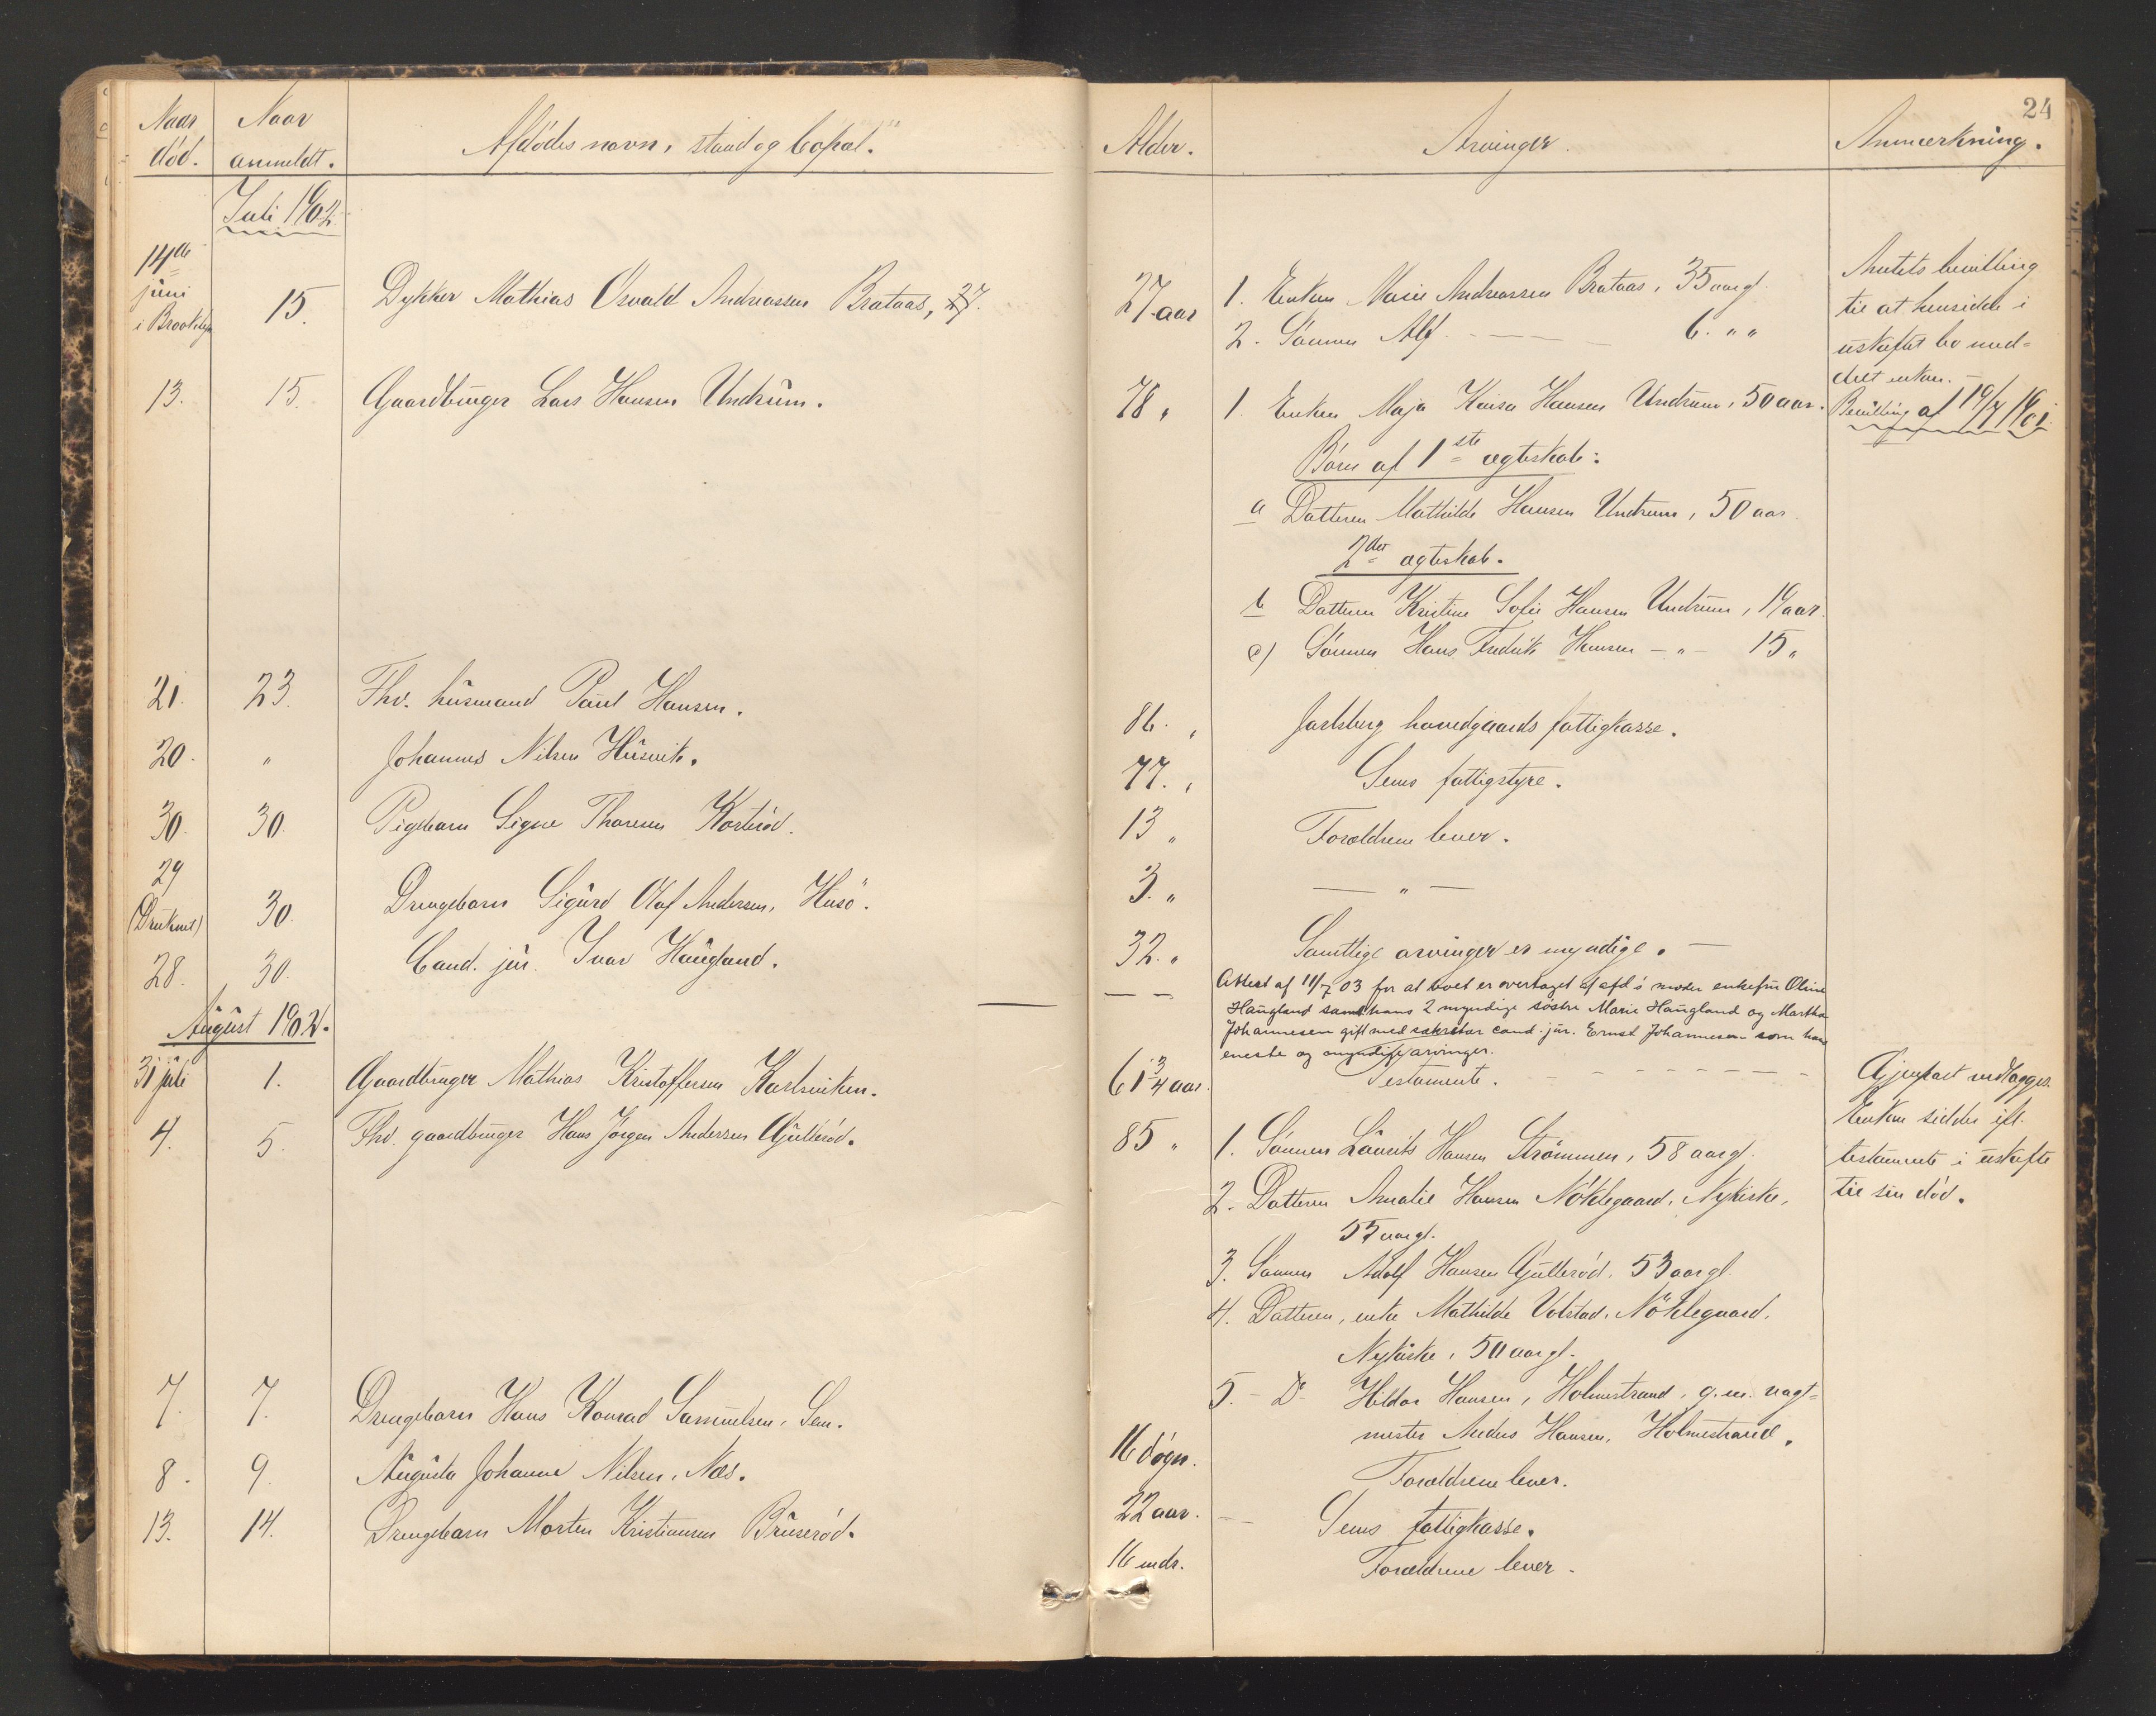 Naar død.
Naar anmeldt.
Afdødes navn, stand og bopæl.
Alder.
Arvinger.
Anmærkning.
24
Juli 1902
14de juni i Brooklyn
15.
Dykker Mathias Osvald Andreassen Brataas, 27.
27 aar
1. Enken Marie Andreassen Brataas, 35 aargl.
2. Sønnen Alf — — — 6. " "
Amtets bevilling
til at hensidde i
uskiftet bo med-
delt enken. —
13.
15.
Gaardbruger Lars Hansen Undrum.
78 "
1. Enken Maja Kaisa Hansen Undrum, 50 aar.
Bevilling af 19/7 1901
Børn af 1ste ægteskab:
a Datteren Mathilde Hansen Undrum, 50 aar.
2det ægteskab.
b Datteren Kristine Sofie Hansen Undrum, 19 aar.
c) Sønnen Hans Fredrik Hansen — " — 15 "
21.
23.
Fhv. husmand Paul Hansen.
86. "
Jarlsberg hovedgaards fattigkasse.
20.
"
Johannes Nilsen Husvik.
77. "
Sems fattigstyre.
30.
30.
Pigebarn Signe Thoresen Korterød.
13 "
Forældrene lever.
29
(Druknet)
30.
Drengebarn Sigurd Olaf Andersen, Husø.
3. "
— " —
28.
30.
Cand. jur. Ivar Haugland.
32. "
Samtlige arvinger er myndige. —
Attest af 11/7 03 for at boet er overtaget af afd's moder enkefru Oline
Haugland samt hans 2 myndige søstre Marie Haugland og Martha
Johannesen gift med sekretær cand. jur. Ernst Johannesen som hans
eneste og myndige arvinger.
August 1902.
31 juli
1.
Gaardbruger Mathias Kristoffersen Karlsviken.
61 3/4 aar.
Testamente. — — — — — — —
Gjenpart vedlægges.
Enken sidder ifl.
testamente i uskifte
til sin død.
4.
5.
Fhv. gaardbruger Hans Jørgen Andersen Gullerød.
85 "
1. Sønnen Laurits Hansen Strømmen, 58 aargl.
2. Datteren Amalie Hansen Nøklegaard, Nykirke,
55 aargl.
3. Sønnen Adolf Hansen Gullerød, 53 aargl.
4. Datteren, enke Mathilde Volstad, Nøklegaard,
Nykirke, 50 aargl.
5. — Do Hilda Hansen, Holmestrand, g. m. vagt-
mester Anders Hansen, Holmestrand.
7.
7.
Drengebarn Hans Konrad Samuelsen, Sem.
16 døgn.
Forældrene lever.
8.
9.
Augusta Johanne Nilsen, Næs.
22 aar.
— Sems fattigkasse.
13.
14.
Drengebarn Morten Kristiansen Bruserød.
16 mdr.
Forældrene lever.